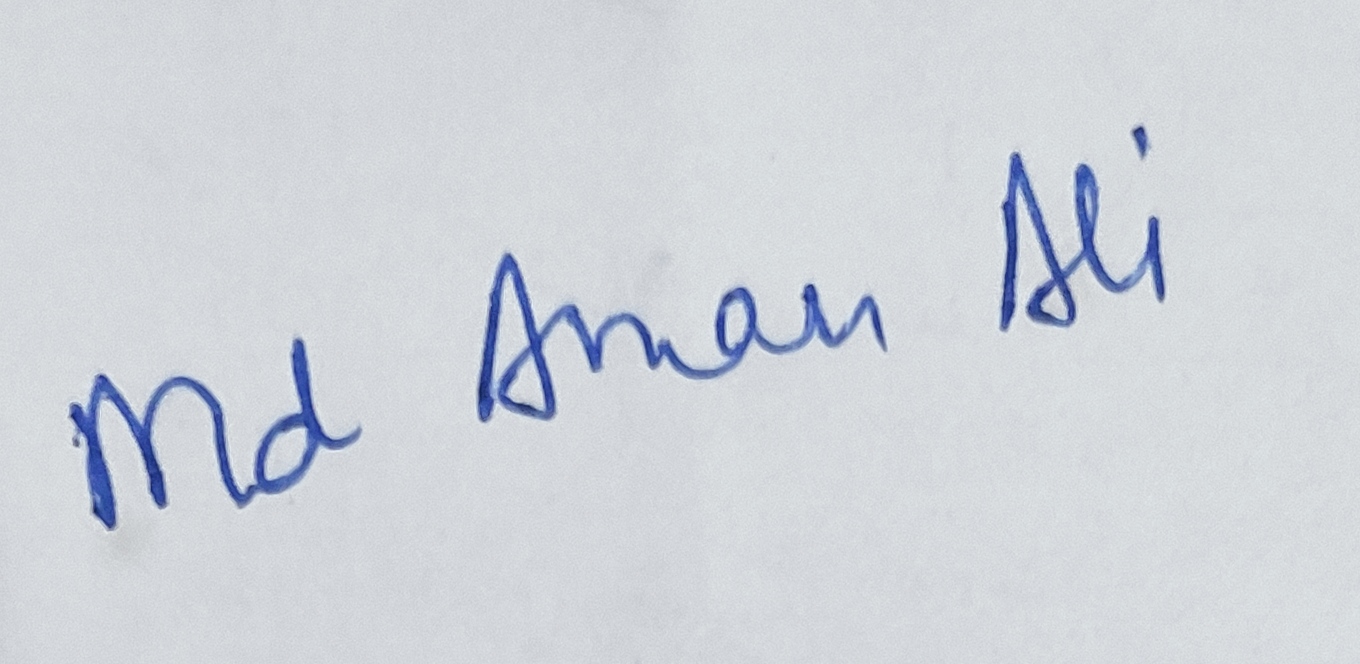 Md Aman Ali